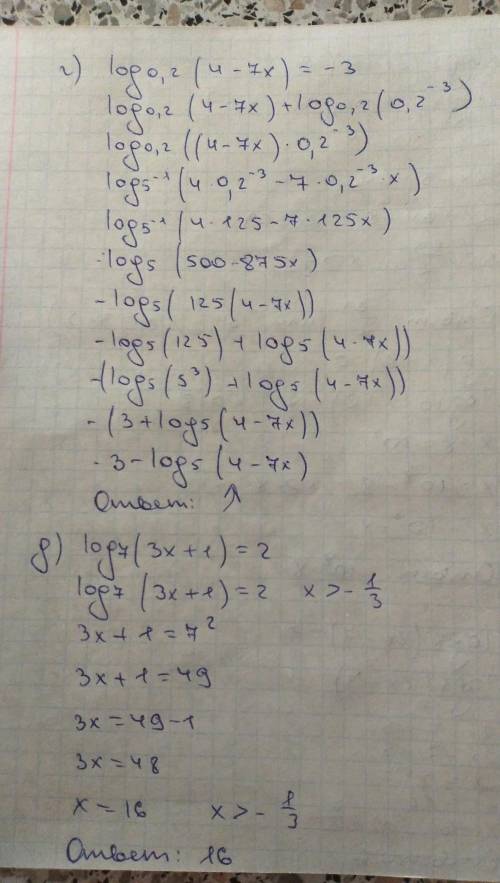 г) log0,2 (4-7x) = -3
log0,2 (4-7x) + log0,2 (0,2⁻³)
log0,2 ((4-7x) · 0,2⁻³)
log5⁻¹ (4 · 0,2⁻³ - 7 · 0,2⁻³ · x)
log5⁻¹ (4 · 125 - 7 · 125x)
-log5 (500-875x)
-log5 ( 125 (4-7x))
-log5 (125) + log5 (4-7x))
-(log5 (5³) + log5 (4-7x))
- (3 + log5 (4-7x))
-3 - log5 (4-7x)
Ответ: ↗
д) log7 (3x+1) = 2
log7 (3x+1) = 2 x > - 1/3
3x + 1 = 7²
3x + 1 = 49
3x = 49-1
3x = 48
x = 16 x > - 1/3
Ответ: 16